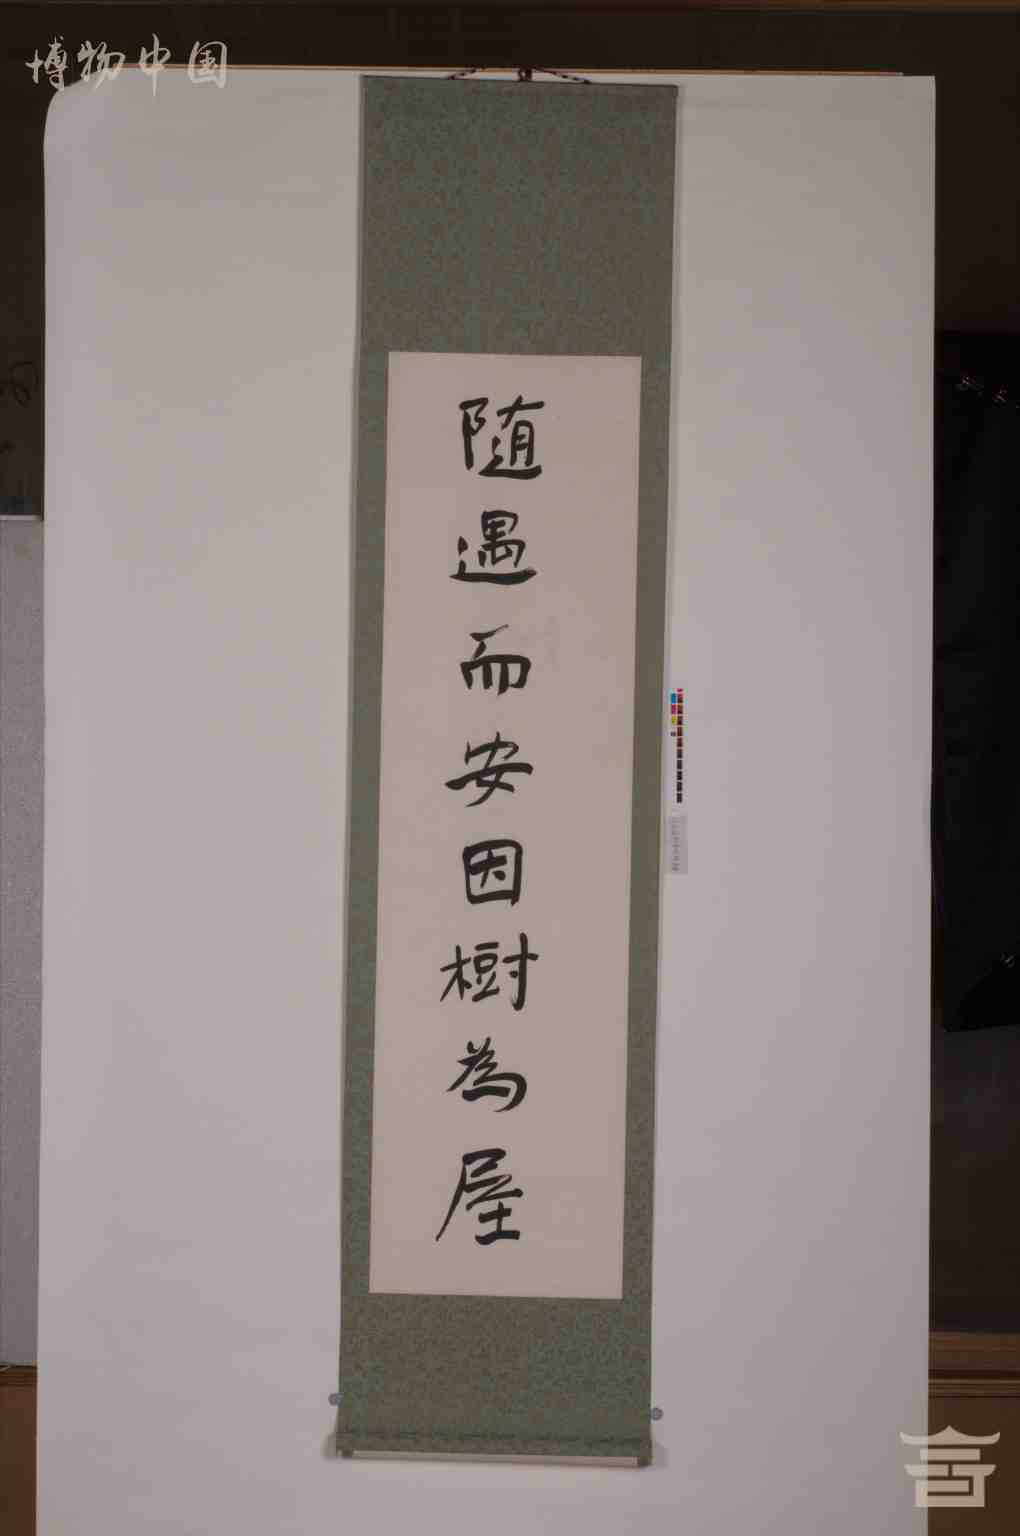 博物中国
随遇而安因樹為屋